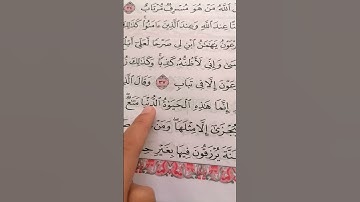 ٱللَّهُ مَنۡ هُوَ مُسۡرِفٞ مُّرۡتَابٌ ٣٤
عِندَ ٱللَّهِ وَعِندَ ٱلَّذِينَ ءَامَنُواْۚ
عَوۡنُ يَٰهَٰمَٰنُ ٱبۡنِ لِي صَرۡحٗا لَّعَلِّيٓ أَبۡ
سَىٰ وَإِنِّي لَأَظُنُّهُۥ كَٰذِبٗاۚ وَكَذَٰلِكَ
عَوۡنَ إِلَّا فِي تَبَابٖ ٣٧ وَقَالَ ٱلَّذِ
إِنَّمَا هَٰذِهِ ٱلۡحَيَوٰةُ ٱلدُّنۡيَا مَتَٰعٞ
يُجۡزَىٰٓ إِلَّا مِثۡلَهَاۖ وَمَنۡ
نَّةَ يُرۡزَقُونَ فِيهَا بِغَيۡرِ حِسَ